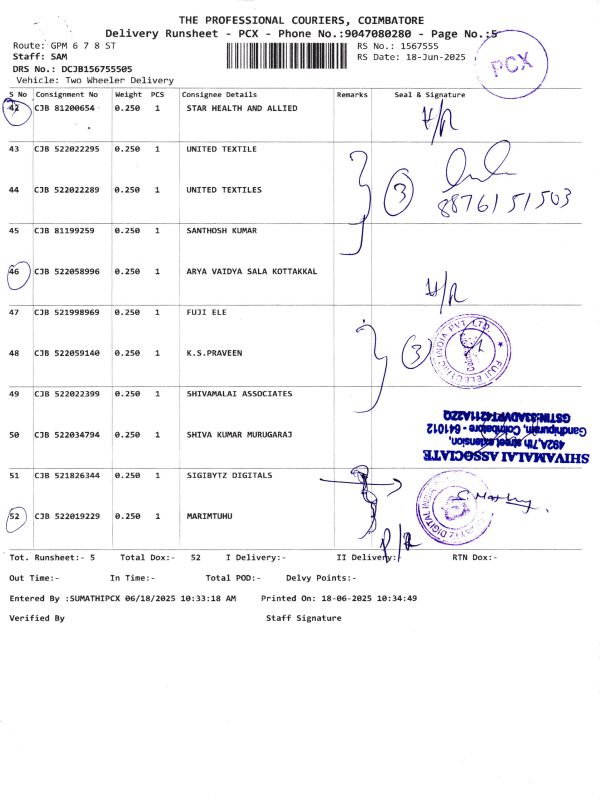 THE PROFESSIONAL COURIERS, COIMBATORE
Delivery Runsheet - PCX - Phone No.:9047080280 - Page No.:5
Route: GPM 6 7 8 ST RS No.: 1567555
Staff: SAM RS Date: 18-Jun-2025
PCX
DRS No.: DCJB156755505
Vehicle: Two Wheeler Delivery
S No Consignment No Weight PCS Consignee Details Remarks Seal & Signature
42 CJB 81200654 0.250 1 STAR HEALTH AND ALLIED
43 CJB 522022295 0.250 1 UNITED TEXTILE
44 CJB 522022289 0.250 1 UNITED TEXTILES 3 8876151503
45 CJB 81199259 0.250 1 SANTHOSH KUMAR
46 CJB 522058996 0.250 1 ARYA VAIDYA SALA KOTTAKKAL
47 CJB 521998969 0.250 1 FUJI ELE
48 CJB 522059140 0.250 1 K.S.PRAVEEN 3
FUJI ELECTRIC INDIA PVT LTD
49 CJB 522022399 0.250 1 SHIVAMALAI ASSOCIATES
50 CJB 522034794 0.250 1 SHIVA KUMAR MURUGARAJ
SHIVAMALAI ASSOCIATE
492A, 7th street extension,
Gandhipuram, Coimbatore - 641012
51 CJB 521826344 0.250 1 SIGIBYTZ DIGITALS
52 CJB 522019229 0.250 1 MARIMTUHU
Tot. Runsheet:- 5 Total Dox:- 52 I Delivery:- II Delivery:- RTN Dox:-
Out Time:- In Time:- Total POD:- Delvy Points:-
Entered By :SUMATHIPCX 06/18/2025 10:33:18 AM Printed On: 18-06-2025 10:34:49
Verified By Staff Signature